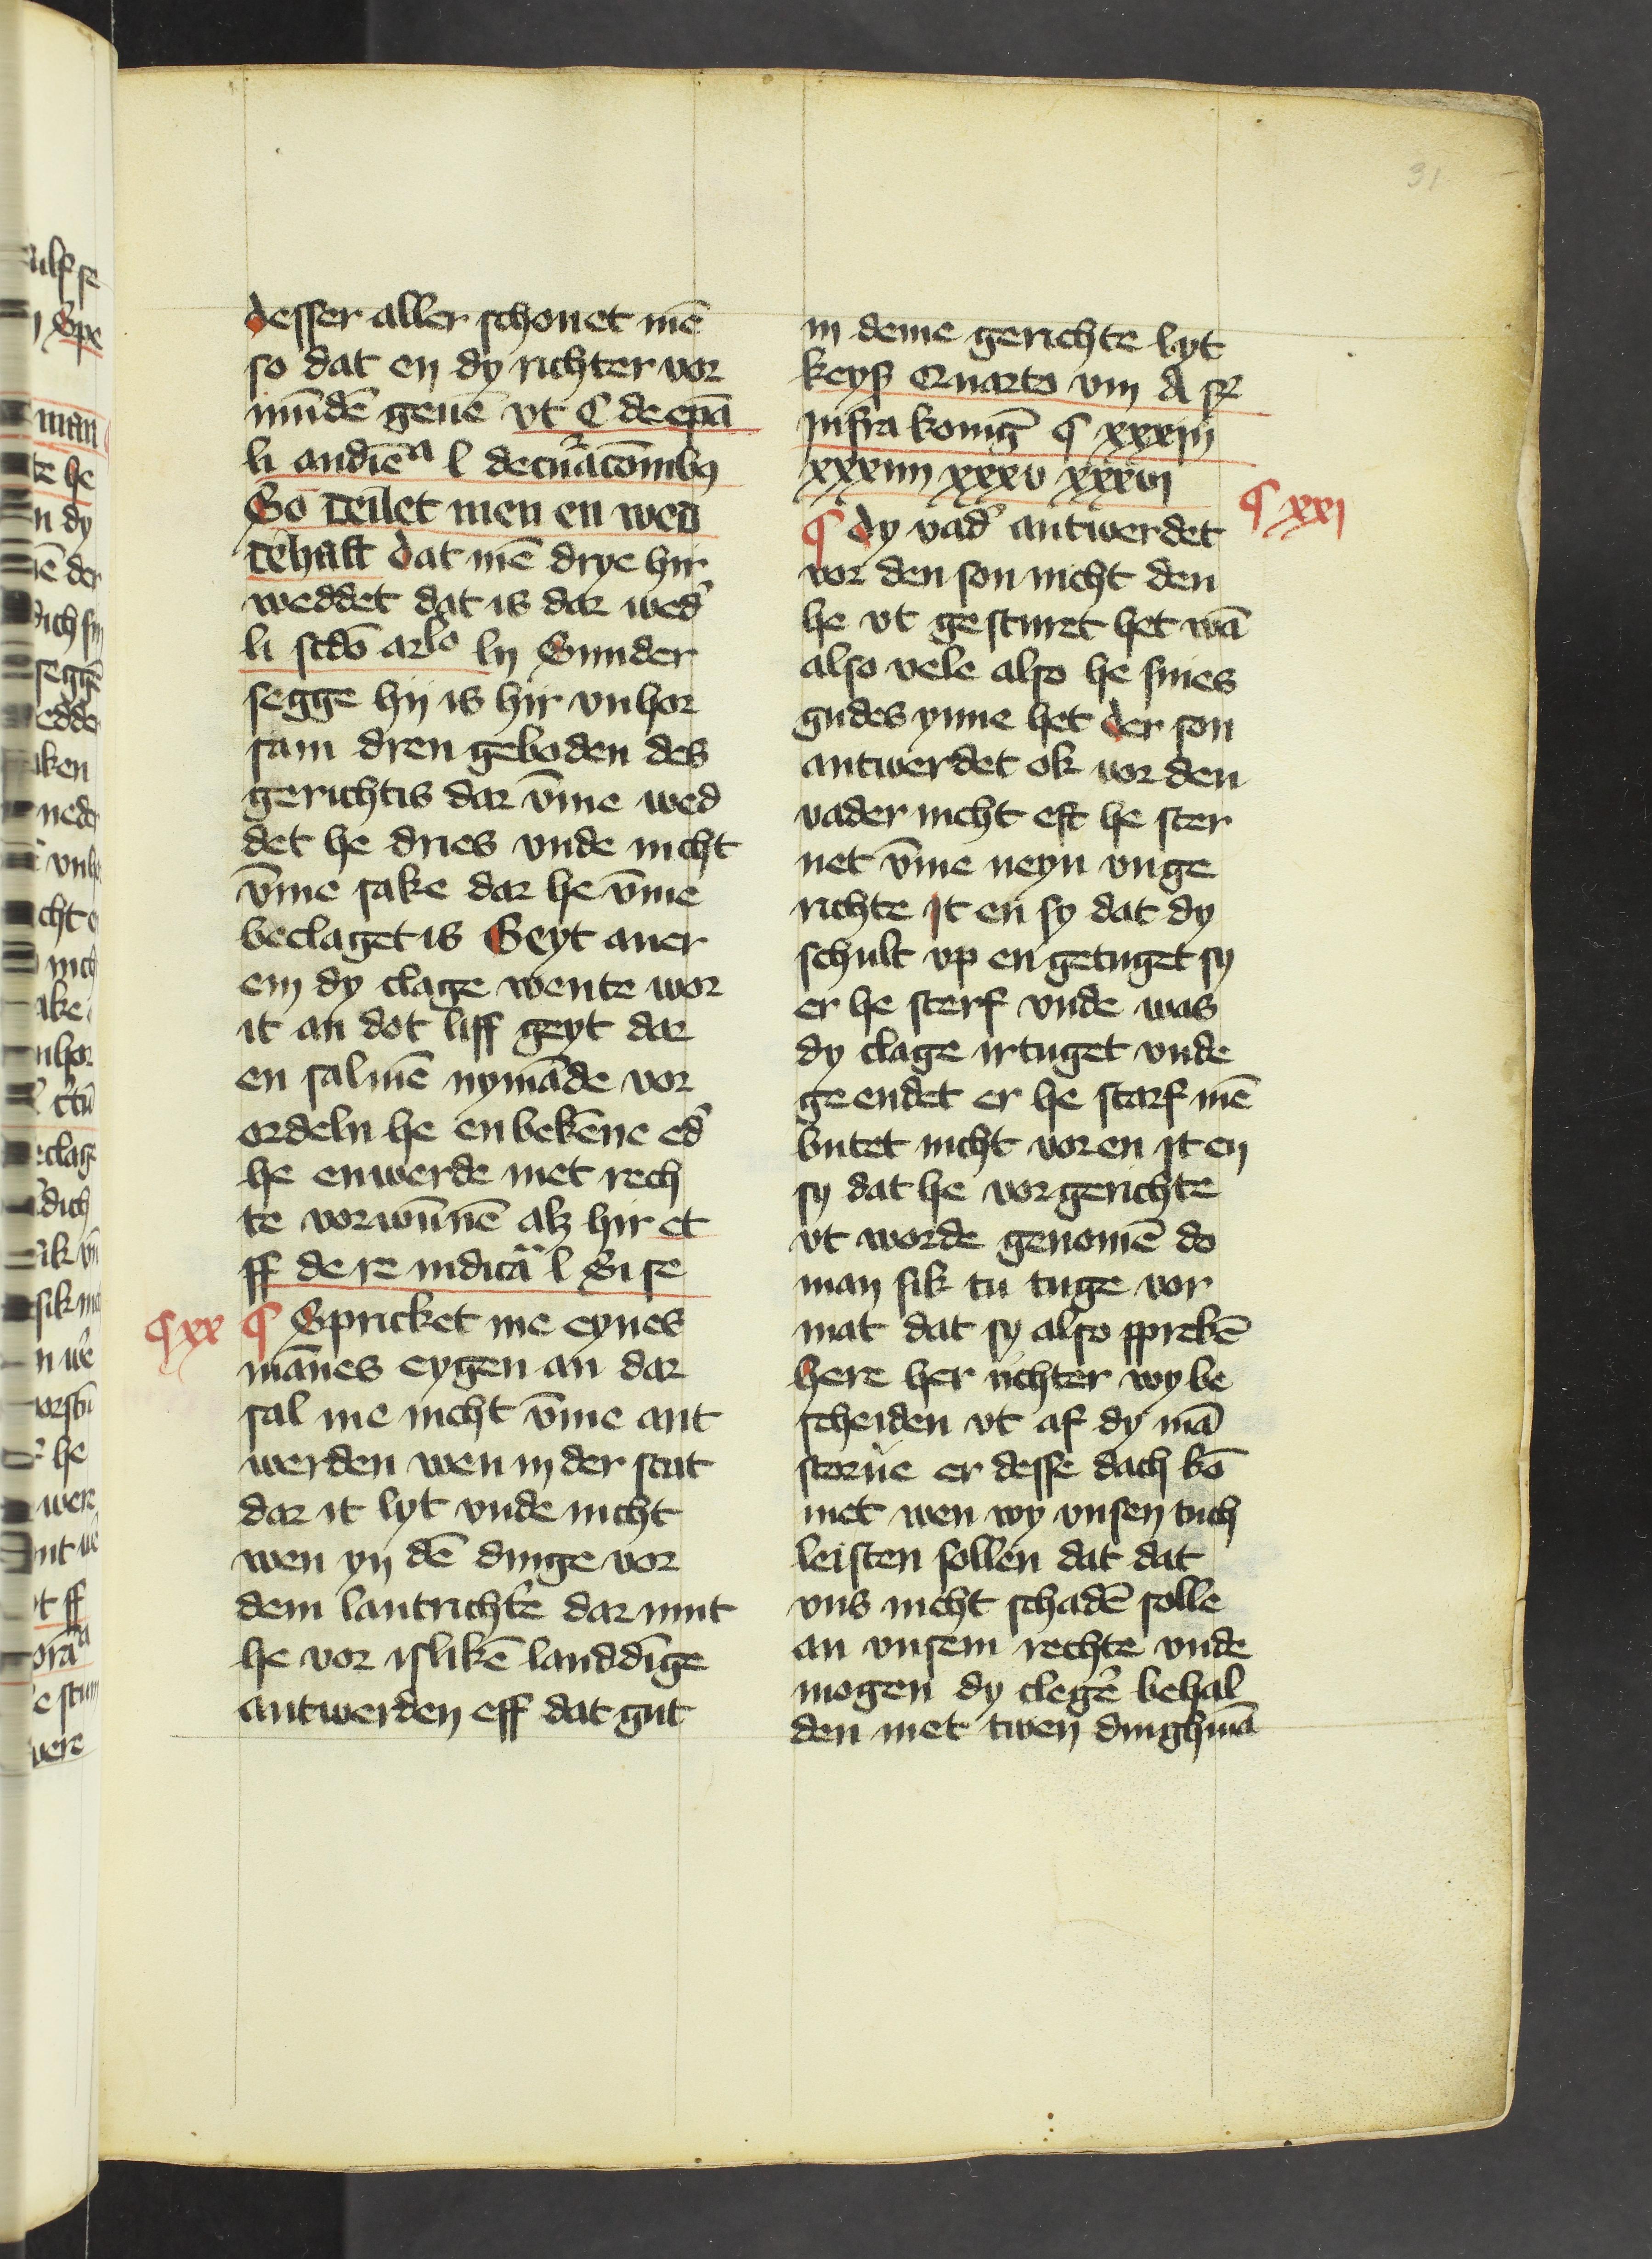 31
desser aller schonet mē
so dat en dy richter vor
mu̅dē geuē vt C de epā
li andiēᵃ l decu̅acōmbꝯ
So teilet men en wed
tehaft dat mē drye hir
weddet dat is dar wed᷎
li scdō arlo lij Sunder
segge hij is hir vnhor
sam dren geboden des
gerichtis dar v̅me wed
det he dries vnde nicht
v̅me sake dar he v̅me
beclaget is Geyt auer
em dy clage wente wor
it an dot liff geyt dar
en sal mē nymāde vor
ordeln he en bekēne ed᷎
he enwerde met rech
te vorwu̅nē alz hir et
ff de re iudicā l Si se
¶ xx
¶ Spricket me eynes
mānes eygen an dar
sal me nicht v̅me ant
werden wen in der stat
dar it lyt vnde nicht
wen yn dē dinge vor
dem lantricht᷎e dar mut
he vor islikē landdīge
antwerden eff dat gut
in deme gerichte lyt
keyß Quarto viii A sꝛ
Infra koniḡ ¶ xxxiij
xxxiiii xxxv xxxvi
¶ xxi
¶ dy vad᷎ antwerdet
vor den son nicht den
he vt gesturet het wā
also vele also he sines
gudes ynne het der son
antwerdet ok vor den
vader nicht eft he ster
uet v̅me neyn vnge
richte it en sy dat dy
schult vp en getuget sy
er he sterf vnde was
dy clage irtuget vnde
geendet er he starf mē
butet nicht vor en it en
sy dat he vor gerichte
vt worde genomē do
man sik tu tuge vor
mat dat sy also sprekē
here her richter wy be
scheiden vt af dy mā
storue er desse dach kō
met wen wy vnsen tuch
leisten sollen dat dat
vns nicht schadē solle
an vnsem rechte vnde
mogen dy cleg᷎e behal
den met twen dinghmā